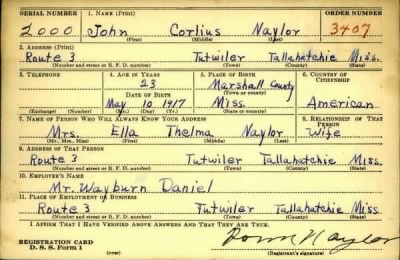 SERIAL NUMBER 1. NAME (Print) ORDER NUMBER
2000 John Corlius Naylor 3407
(First) (Middle) (Last)
2. ADDRESS (Print)
Route 3 Tutwiler Tallahatchie Miss.
(Number and street or R. F. D. number) (Town) (County) (State)
3. TELEPHONE 4. AGE IN YEARS 5. PLACE OF BIRTH 6. COUNTRY OF CITIZENSHIP
23 Marshall County
DATE OF BIRTH (Town or county)
May 10 1917 Miss. American
(Exchange) (Number) (Mo.) (Day) (Yr.) (State or country)
7. NAME OF PERSON WHO WILL ALWAYS KNOW YOUR ADDRESS 8. RELATIONSHIP OF THAT PERSON
Mrs. Ella Thelma Naylor Wife
(Mr., Mrs., Miss) (First) (Middle) (Last)
9. ADDRESS OF THAT PERSON
Route 3 Tutwiler Tallahatchie Miss.
(Number and street or R. F. D. number) (Town) (County) (State)
10. EMPLOYER'S NAME
Mr. Wayburn Daniel
11. PLACE OF EMPLOYMENT OR BUSINESS
Route 3 Tutwiler Tallahatchie Miss
(Number and street or R. F. D. number) (Town) (County) (State)
I AFFIRM THAT I HAVE VERIFIED ABOVE ANSWERS AND THAT THEY ARE TRUE.
REGISTRATION CARD
D. S. S. Form 1 (over) (Registrant's signature)
Naylor